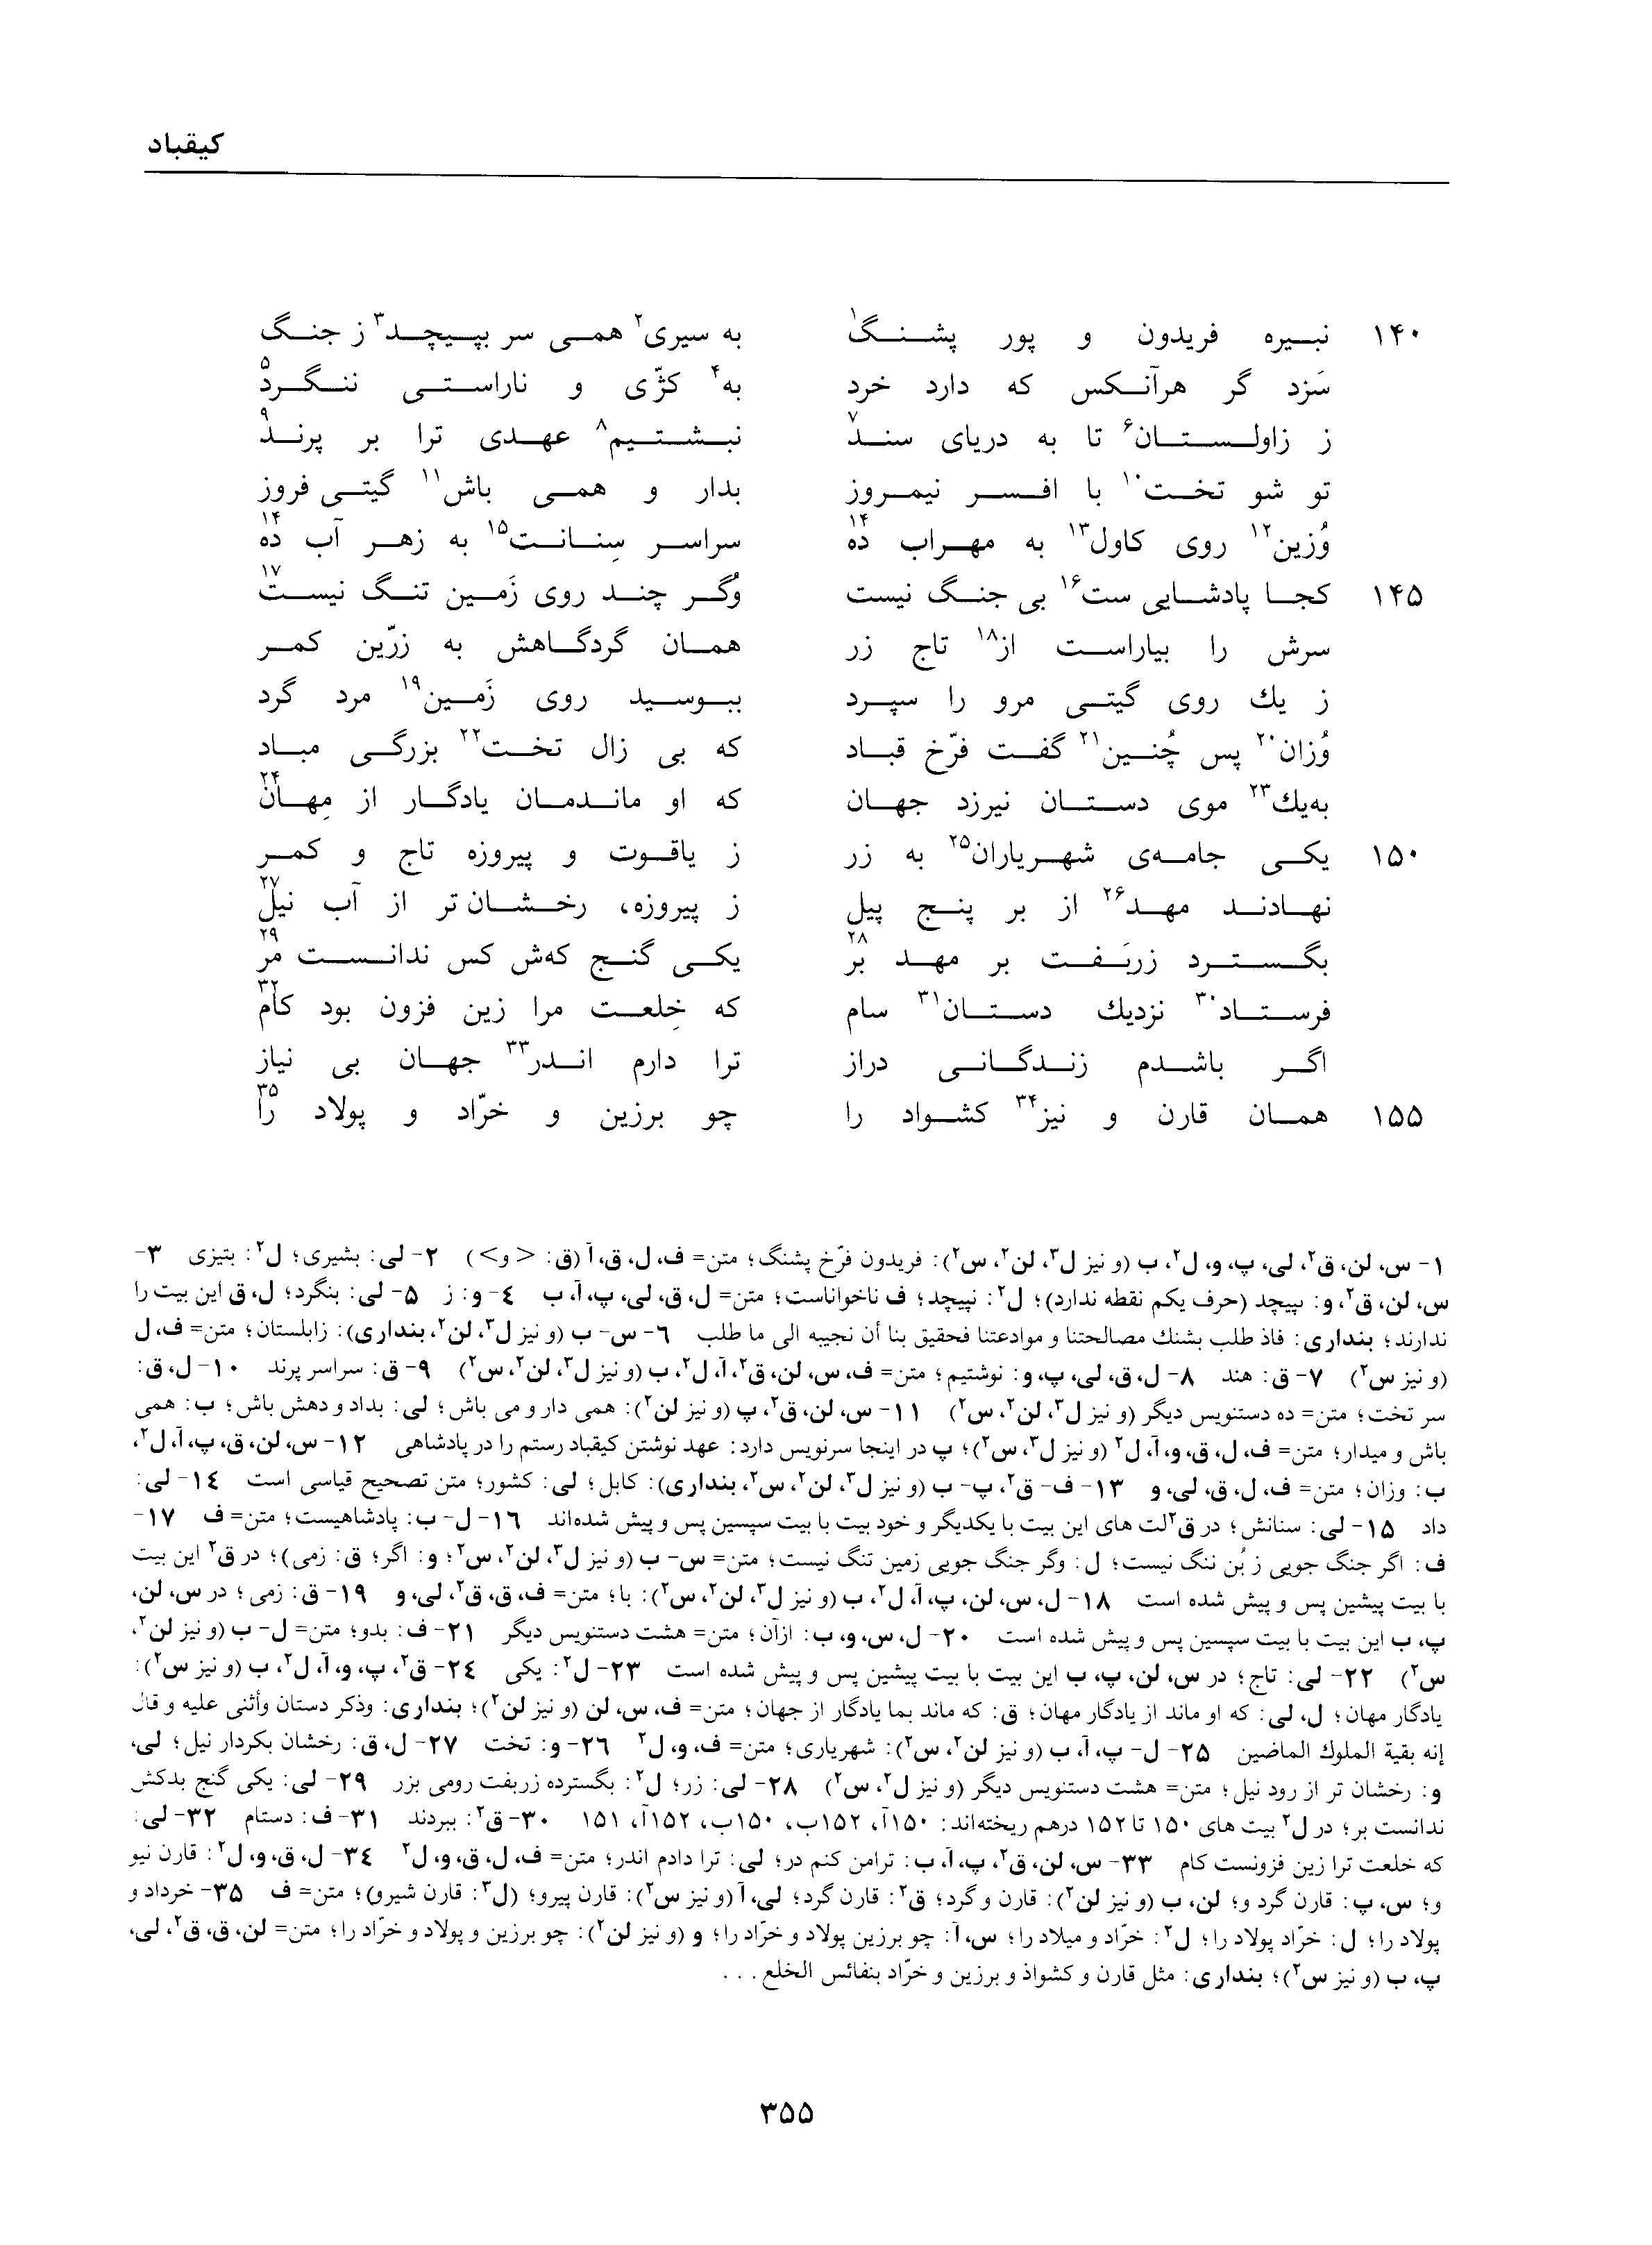 کیقباد
۱۴۰ نبیره فریدون و پور پشنگ۱ به سیری۲ همی سر بپیچد۳ ز جنگ
سَزد گر هرآنکس که دارد خرد به۴ کژّی و ناراستی ننگرد۵
ز زاولستان۶ تا به دریای سند۷ نبشتیم۸ عهدی ترا بر پرند۹
تو شو تخت۱۰ با افسر نیمروز بدار و همی باش۱۱ گیتی فروز
وُزین۱۲ روی کاول۱۳ به مهراب ده۱۴ سراسر سِنانت۱۵ به زهر آب ده۱۴
۱۴۵ کجا پادشایی ست۱۶ بی جنگ نیست وُگر چند روی زَمین تنگ نیست۱۷
سرش را بیاراست از۱۸ تاج زر همان گردگاهش به زرّین کمر
ز یك روی گیتی مرو را سپرد ببوسید روی زَمین۱۹ مرد گرد
وُزان۲۰ پس چُنین۲۱ گفت فرّخ قباد که بی زال تخت۲۲ بزرگی مباد
به‌یك۲۳ موی دستان نیرزد جهان که او ماندمان یادگار از مِهان۲۴
۱۵۰ یکی جامه‌ی شهریاران۲۵ به زر ز یاقوت و پیروزه تاج و کمر
نهادند مهد۲۶ از بر پنج پیل ز پیروزه، رخشان‌تر از آب نیل۲۷
بگسترد زربَفت بر مهد بر۲۸ یکی گنج که‌ش کس ندانست مر۲۹
فرستاد۳۰ نزدیك دستان۳۱ سام که خِلعت مرا زین فزون بود کام۳۲
اگر باشدم زندگانی دراز ترا دارم اندر۳۳ جهان بی نیاز
۱۵۵ همان قارن و نیز۳۴ کشواد را چو برزین و خرّاد و پولاد را۳۵
۱- س، لن، ق۲، لی، پ، و، ل۲، ب (و نیز ل۳، لن۲، س۲): فریدون فرّخ پشنگ؛ متن= ف، ل، ق، آ (ق: <و>) ۲- لی: بشیری؛ ل۲: بتیزی ۳-
س، لن، ق۲، و: بپیچد (حرف یکم نقطه ندارد)؛ ل۲: نپیچد؛ ف ناخواناست؛ متن= ل، ق، لی، پ، آ، ب ۴- و: ز ۵- لی: بنگرد؛ ل، ق این بیت را
ندارند؛ بنداری: فاذ طلب بشنك مصالحتنا و موادعتنا فحقیق بنا أن نجیبه الی ما طلب ۶- س- ب (و نیز ل۳، لن۲، بنداری): زابلستان؛ متن= ف، ل
(و نیز س۲) ۷- ق: هند ۸- ل، ق، لی، پ، و: نوشتیم؛ متن= ف، س، لن، ق۲، آ، ل۲، ب (و نیز ل۳، لن۲، س۲) ۹- ق: سراسر پرند ۱۰- ل، ق:
سر تخت؛ متن= ده دستنویس دیگر (و نیز ل۳، لن۲، س۲) ۱۱- س، لن، ق۲، پ (و نیز لن۲): همی دار و می باش؛ لی: بداد و دهش باش؛ ب: همی
باش و میدار؛ متن= ف، ل، ق، و، آ، ل۲ (و نیز ل۳، س۲)؛ پ در اینجا سرنویس دارد: عهد نوشتن کیقباد رستم را در پادشاهی ۱۲- س، لن، ق، پ، آ، ل۲،
ب: وزان؛ متن= ف، ل، ق، لی، و ۱۳- ف- ق۲، پ- ب (و نیز ل۳، لن۲، س۲، بنداری): کابل؛ لی: کشور؛ متن تصحیح قیاسی است ۱۴- لی:
داد ۱۵- لی: سنانش؛ در ق۲ لت های این بیت با یکدیگر و خود بیت با بیت سپسین پس و پیش شده‌اند ۱۶- ل- ب: پادشاهیست؛ متن= ف ۱۷-
ف: اگر جنگ جویی ز بُن ننگ نیست؛ ل: وگر جنگ جویی زمین تنگ نیست؛ متن= س- ب (و نیز ل۳، لن۲، س۲؛ و: اگر؛ ق: زمی)؛ در ق۲ این بیت
با بیت پیشین پس و پیش شده است ۱۸- ل، س، لن، پ، آ، ل۲، ب (و نیز ل۳، لن۲، س۲): با؛ متن= ف، ق، ق۲، لی، و ۱۹- ق: زمی؛ در س، لن،
پ، ب این بیت با بیت سپسین پس و پیش شده است ۲۰- ل، س، و، ب: ازآن؛ متن= هشت دستنویس دیگر ۲۱- ف: بدو؛ متن= ل- ب (و نیز لن۲،
س۲) ۲۲- لی: تاج؛ در س، لن، پ، ب این بیت با بیت پیشین پس و پیش شده است ۲۳- ل۲: یکی ۲۴- ق۲، پ، و، آ، ل۲، ب (و نیز س۲):
یادگار مهان؛ ل، لی: که او ماند از یادگار مهان؛ ق: که ماند بما یادگار از جهان؛ متن= ف، س، لن (و نیز لن۲)؛ بنداری: وذکر دستان وأثنی علیه و قال
إنه بقیة الملوك الماضین ۲۵- ل- پ، آ، ب (و نیز لن۲، س۲): شهریاری؛ متن= ف، و، ل۲ ۲۶- و: تخت ۲۷- ل، ق: رخشان بکردار نیل؛ لی،
و: رخشان تر از رود نیل؛ متن= هشت دستنویس دیگر (و نیز ل۲، س۲) ۲۸- لی: زر؛ ل۲: بگسترده زربفت رومی بزر ۲۹- لی: یکی گنج بدکش
ندانست بر؛ در ل۲ بیت های ۱۵۰ تا ۱۵۲ درهم ریخته‌اند: ۱۵۰آ، ۱۵۲ب، ۱۵۰ب، ۱۵۲آ، ۱۵۱ ۳۰- ق۲: ببردند ۳۱- ف: دستام ۳۲- لی:
که خلعت ترا زین فزونست کام ۳۳- س، لن، ق۲، پ، آ، ب: ترامن کنم در؛ لی: ترا دادم اندر؛ متن= ف، ل، ق، و، ل۲ ۳۴- ل، ق، و، ل۲: قارن نیو
و؛ س، پ: قارن گرد و؛ لن، ب (و نیز لن۲): قارن و گرد؛ ق۲: قارن گرد؛ لی، آ (و نیز س۲): قارن پیرو؛ (ل۳: قارن شیرو)؛ متن= ف ۳۵- خرداد و
پولاد را؛ ل: خرّاد پولاد را؛ ل۲: خرّاد و میلاد را؛ س، آ: چو برزین پولاد و خرّاد را؛ و (و نیز لن۲): چو برزین و پولاد و خرّاد را؛ متن= لن، ق، ق۲، لی،
پ، ب (و نیز س۲)؛ بنداری: مثل قارن و کشواذ و برزین و خرّاد بنفائس الخلع...
۳۵۵